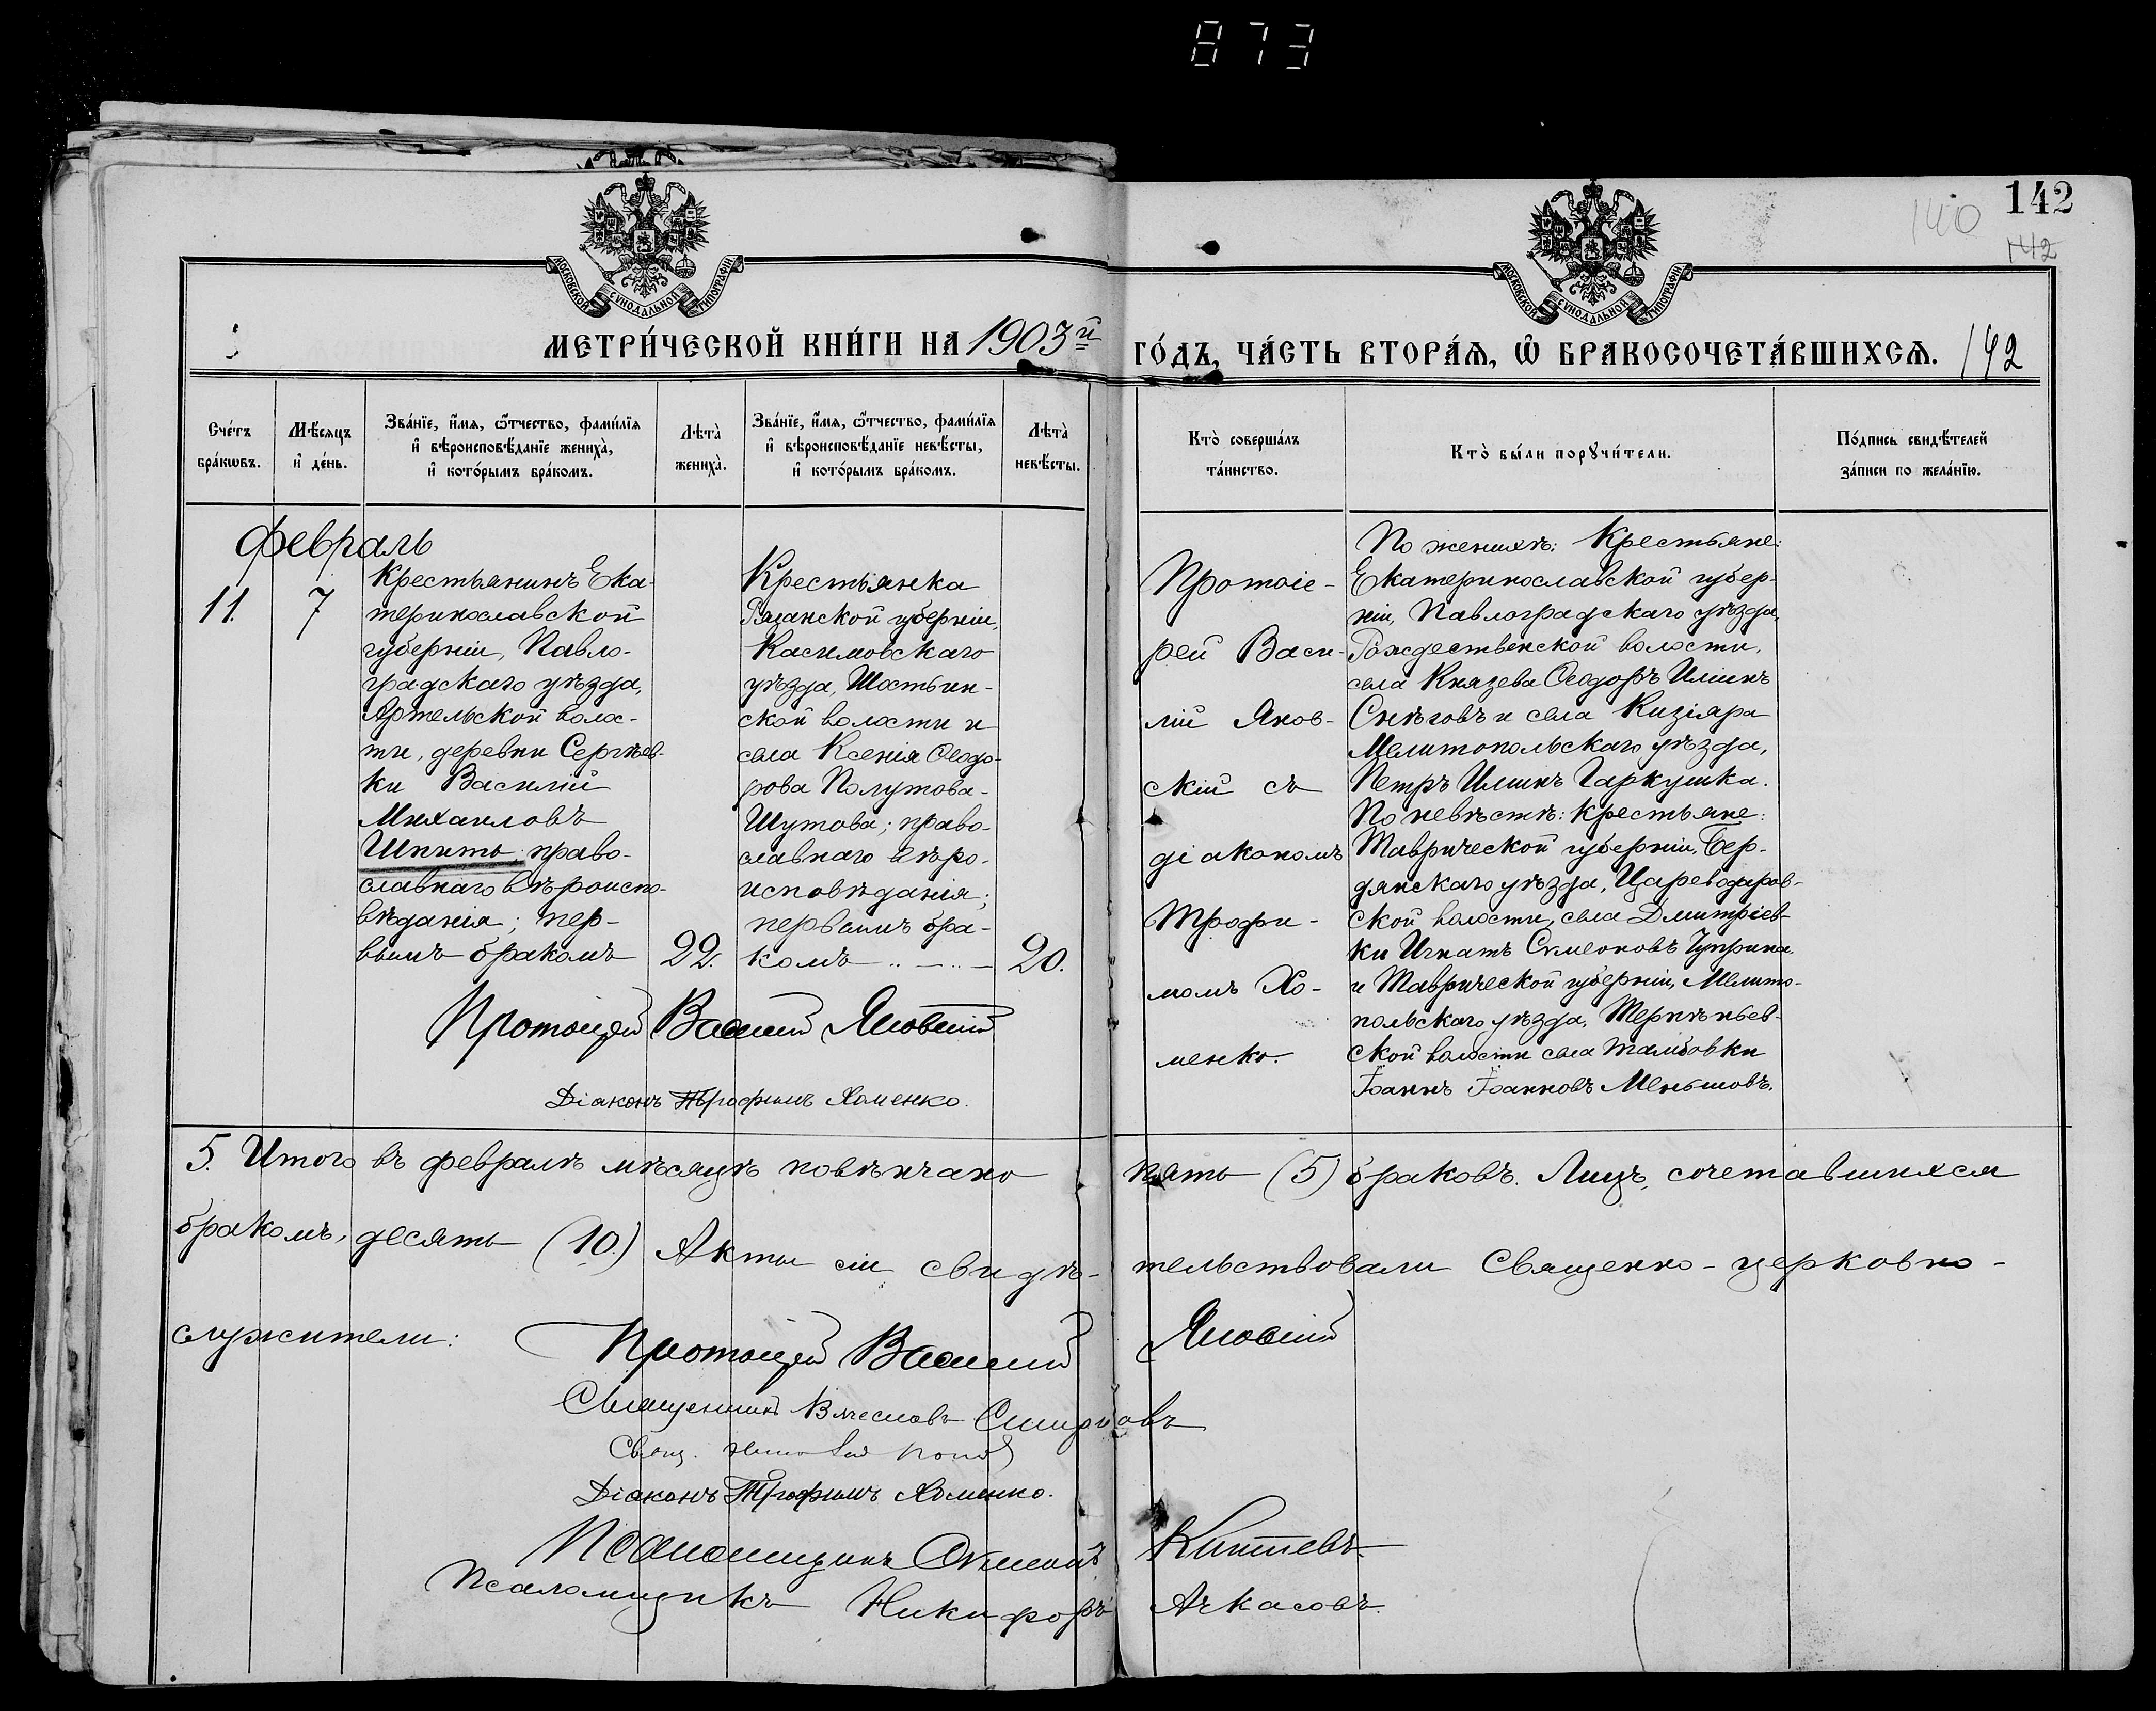 873
142
140
142
МОСКОВСКОЙ СѴНОДАЛЬНОЙ ТИПОГРАФІИ
МОСКОВСКОЙ СѴНОДАЛЬНОЙ ТИПОГРАФІИ
МЕТРИ́ЧЕСКОЙ КНИ́ГИ НА 1903й
ГО́ДЪ, ЧА́СТЬ ВТОРА́Ѧ, Ѽ БРАКОСОЧЕТА́ВШИХСѦ. 142
Сче́тъ бра́кѡвъ.
Мѣ́сяцъ и҆ де́нь.
Зва́нїе, и҆́мя, ѻ҆́тчество, фами́лїя
и҆ вѣроисповѣ́данїе жениха̀,
и҆ кото́рымъ бра́комъ.
Лѣта̀ жениха̀.
Зва́нїе, и҆́мя, ѻ҆́тчество, фами́лїя
и҆ вѣроисповѣ́данїе невѣ́сты,
и҆ кото́рымъ бра́комъ.
Лѣта̀ невѣ́сты.
Кто̀ соверша́лъ
та́инство.
Кто̀ бы́ли порꙋчи́тели.
По́дпись свидѣ́телей
за́писи по жела́нїю.
Февраль
11.
7
Крестьянинъ Ека-
теринославской
губерніи, Павло-
градскаго уѣзда,
Артельской волос-
ти, деревни Сергѣев-
ки Василій
Михаиловъ
Шпить; право-
славнаго вѣроиспо-
вѣданія; пер-
вымъ бракомъ
22.
Крестьянка
Рязанской губерніи,
Касимовскаго
уѣзда, Шостьин-
ской волости и
села Ксенія Ѳеодо-
рова Полутова-
Шутова; право-
славнаго вѣро-
исповѣданія;
первымъ бра-
комъ
20.
Протоіе-
рей Васи-
лій Янов-
скій съ
діакономъ
Трофи-
момъ Хо-
менко.
По женихѣ: Крестьяне:
Екатеринославской губер-
ніи, Павлоградскаго уѣзда,
Рождественской волости,
села Князева Ѳеодоръ Илiинъ
Снѣговъ и села Кизіяра
Мелитопольскаго уѣзда,
Петръ Илiинъ Гаркушка.
По невѣстѣ: крестьяне:
Таврической губерніи, Бер-
дянскаго уѣзда, Цареводаров-
ской волости, села Дмитріев-
ки Игнатъ Симеоновъ Чуприна,
и Таврической губерніи, Мелито-
польскаго уѣзда, Терпѣньев-
ской волости села Тамбовки
Іоаннъ Іоанновъ Меньшовъ.
Протоіерей Василій Яновскій
Діаконъ Трофимъ Хоменко.
5. Итого въ февралѣ мѣсяцѣ повѣнчано пять (5) браковъ. Лицъ, сочетавшихся
бракомъ, десять (10.) Акты сіи свидѣ-тельствовали Священно-церковно-
служители:
Протоіерей Василій Яновскій
Священникъ Вячеславъ Смирновъ
Свящ.
Діаконъ Трофимъ Хоменко.
Псаломщикъ Симеонъ
Псаломщикъ Никифоръ Ачкасовъ.